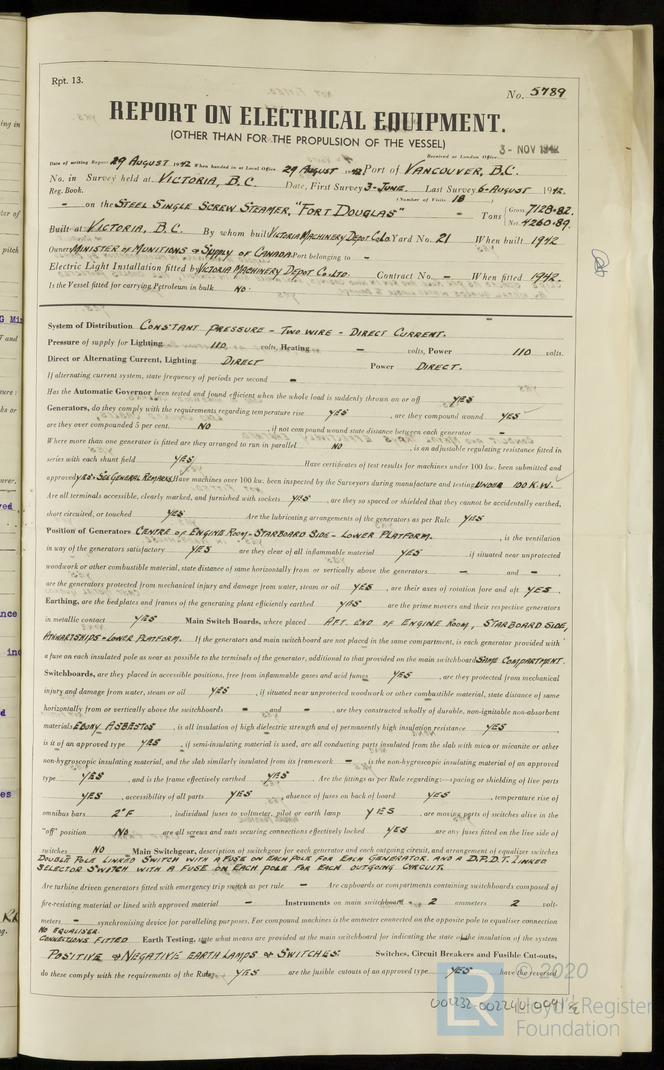 Rpt. 13.
No. 5789
REPORT ON ELECTRICAL EQUIPMENT.
(OTHER THAN FOR THE PROPULSION OF THE VESSEL)
3 - NOV 1942
Received at London Office
Date of writing Report 29 AUGUST 1942 When handed in at Local Office 29 AUGUST 1942 Port of VANCOUVER, B.C.
No. in Survey held at VICTORIA, B.C. Date, First Survey 3-JUNE. Last Survey 6-AUGUST 1942.
Reg. Book. (Number of Visits 18)
- on the STEEL SINGLE SCREW STEAMER, "FORT DOUGLAS" - Tons Gross 7128.82. Net 4260.89.
Built at VICTORIA, B.C. By whom built VICTORIA MACHINERY DEPOT CO. LTD. Yard No. 21 When built 1942
Owners MINISTER OF MUNITIONS & SUPPLY OF CANADA Port belonging to -
Electric Light Installation fitted by VICTORIA MACHINERY DEPOT CO. LTD. Contract No. - When fitted 1942.
Is the Vessel fitted for carrying Petroleum in bulk NO.
System of Distribution CONSTANT PRESSURE - TWO WIRE - DIRECT CURRENT.
Pressure of supply for Lighting 110 volts, Heating - volts, Power 110 volts.
Direct or Alternating Current, Lighting DIRECT Power DIRECT.
If alternating current system, state frequency of periods per second -
Has the Automatic Governor been tested and found efficient when the whole load is suddenly thrown on or off YES
Generators, do they comply with the requirements regarding temperature rise YES, are they compound wound YES
are they over compounded 5 per cent. NO, if not compound wound state distance between each generator -
Where more than one generator is fitted are they arranged to run in parallel NO, is an adjustable regulating resistance fitted in
series with each shunt field YES. Have certificates of test results for machines under 100 kw. been submitted and
approved YES. SEE GENERAL REMARKS. Have machines over 100 kw. been inspected by the Surveyors during manufacture and testing UNDER 100 K.W.
Are all terminals accessible, clearly marked, and furnished with sockets YES, are they so spaced or shielded that they cannot be accidentally earthed,
short circuited, or touched YES Are the lubricating arrangements of the generators as per Rule YES
Position of Generators CENTRE OF ENGINE ROOM - STARBOARD SIDE - LOWER PLATFORM., is the ventilation
in way of the generators satisfactory YES are they clear of all inflammable material YES, if situated near unprotected
woodwork or other combustible material, state distance of same horizontally from or vertically above the generators - and -,
are the generators protected from mechanical injury and damage from water, steam or oil YES, are their axes of rotation fore and aft YES.
Earthing, are the bedplates and frames of the generating plant efficiently earthed YES are the prime movers and their respective generators
in metallic contact YES Main Switch Boards, where placed AFT END OF ENGINE ROOM, STARBOARD SIDE,
ATHWARTSHIPS - LOWER PLATFORM. If the generators and main switchboard are not placed in the same compartment, is each generator provided with
a fuse on each insulated pole as near as possible to the terminals of the generator, additional to that provided on the main switchboard SAME COMPARTMENT.
Switchboards, are they placed in accessible positions, free from inflammable gases and acid fumes YES, are they protected from mechanical
injury and damage from water, steam or oil YES, if situated near unprotected woodwork or other combustible material, state distance of same
horizontally from or vertically above the switchboards - and -, are they constructed wholly of durable, non-ignitable non-absorbent
materials EBONY ASBESTOS, is all insulation of high dielectric strength and of permanently high insulation resistance YES,
is it of an approved type YES, if semi-insulating material is used, are all conducting parts insulated from the slab with mica or micanite or other
non-hygroscopic insulating material, and the slab similarly insulated from its framework -, is the non-hygroscopic insulating material of an approved
type YES, and is the frame effectively earthed YES. Are the fittings as per Rule regarding:—spacing or shielding of live parts
YES, accessibility of all parts YES, absence of fuses on back of board YES, temperature rise of
omnibus bars 2°F, individual fuses to voltmeter, pilot or earth lamp YES, are moving parts of switches alive in the
"off" position NO are all screws and nuts securing connections effectively locked YES are any fuses fitted on the live side of
switches NO Main Switchgear, description of switchgear for each generator and each outgoing circuit, and arrangement of equaliser switches
DOUBLE POLE LINKED SWITCH WITH A FUSE ON EACH POLE FOR EACH GENERATOR. AND A D.P.D.T. LINKED
SELECTOR SWITCH WITH A FUSE ON EACH POLE FOR EACH OUTGOING CIRCUIT.
Are turbine driven generators fitted with emergency trip switch as per rule - Are cupboards or compartments containing switchboards composed of
fire-resisting material or lined with approved material - Instruments on main switchboard 2 ammeters 2 volt-
meters - synchronising device for paralleling purposes. For compound machines is the ammeter connected on the opposite pole to equaliser connection
NO EQUALISER.
CONNECTIONS FITTED Earth Testing, state what means are provided at the main switchboard for indicating the state of the insulation of the system
POSITIVE & NEGATIVE EARTH LAMPS & SWITCHES. Switches, Circuit Breakers and Fusible Cut-outs,
do these comply with the requirements of the Rules YES are the fusible cutouts of an approved type YES have the reversed
© 2020
Lloyd's Register
Foundation
LR